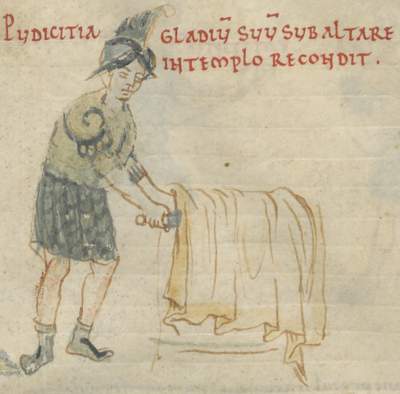 PVDICITIA GLADIṼ SVṼ SVB ALTARE
IN TEMPLO RECONDIT.